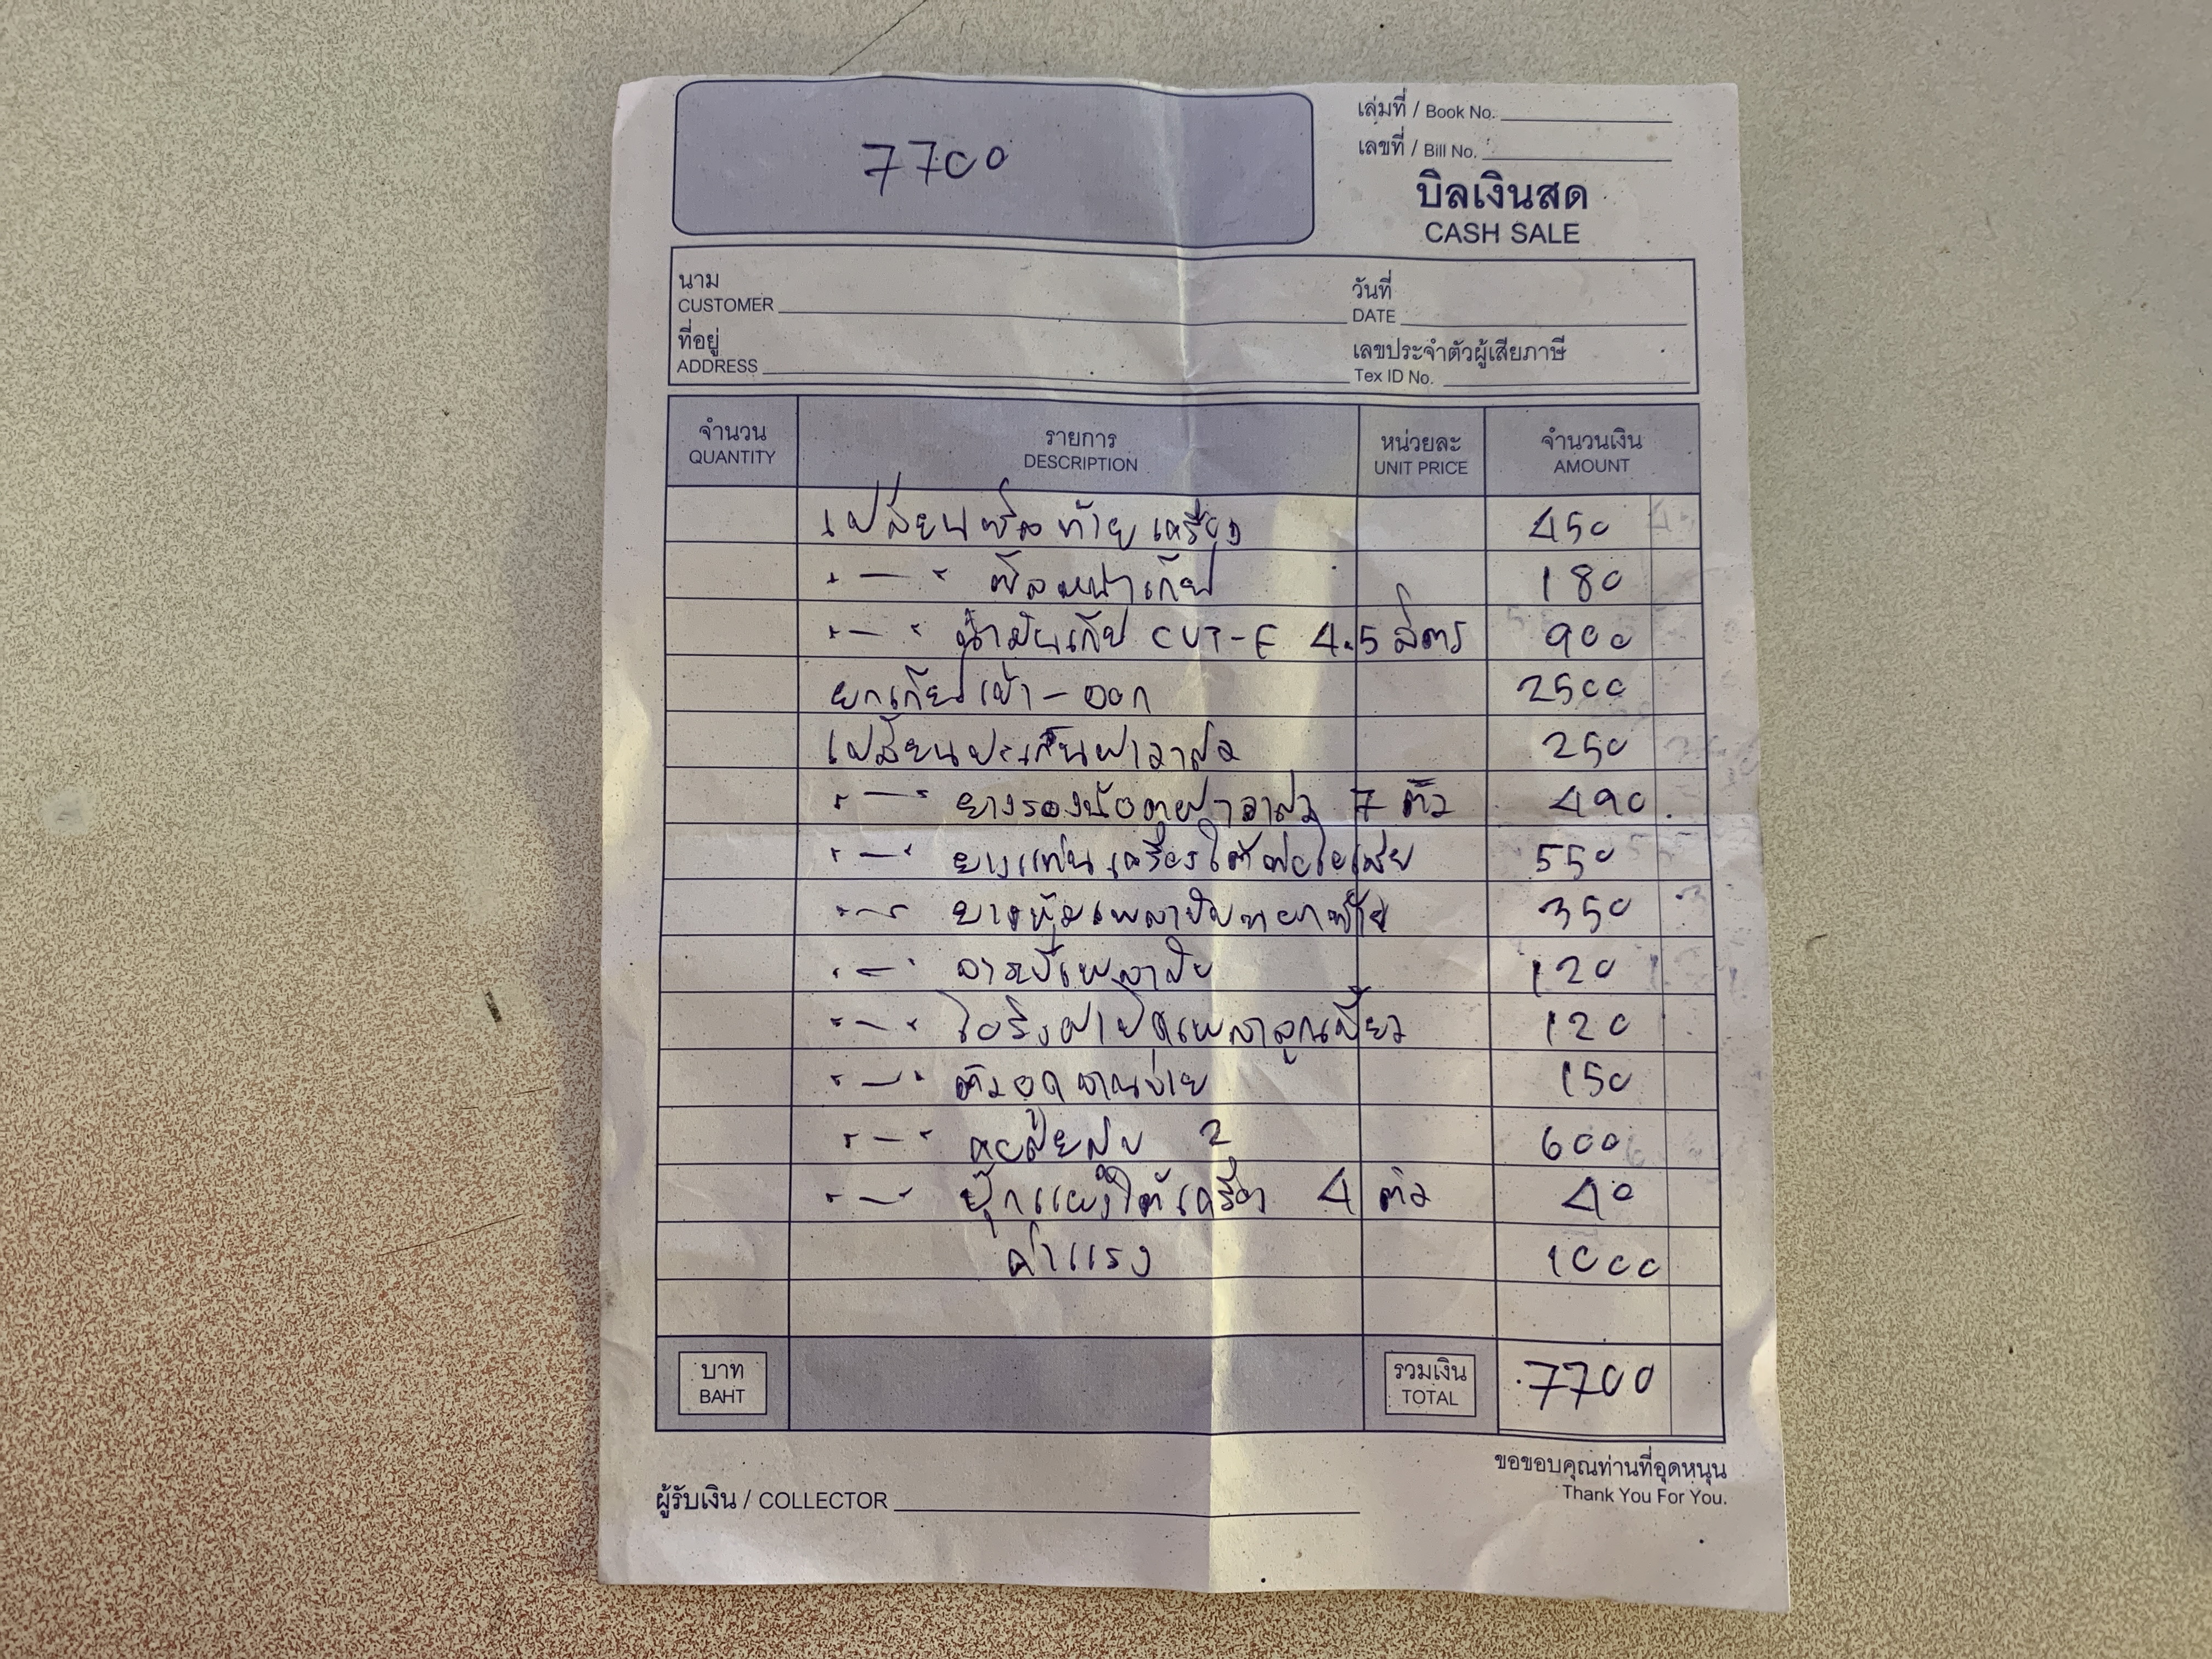 7700
เล่มที่ / Book No.
เลขที่ / Bill No.
บิลเงินสด
CASH SALE
นาม
CUSTOMER
วันที่
DATE
ที่อยู่
ADDRESS
เลขประจำตัวผู้เสียภาษี
Tex ID No.
จำนวน รายการ หน่วยละ จำนวนเงิน
QUANTITY DESCRIPTION UNIT PRICE AMOUNT
เปลี่ยนซีลท้ายเครื่อง 450
" — " ซีลหน้าเกียร์ 180
" — " น้ำมันเกียร์ CVT-F 4.5 ลิตร 900
ยกเกียร์เข้า - ออก 2500
เปลี่ยนปะเก็นฝาวาล์ว 250
" — " ยางรองน็อตฝาวาล์ว 7 ตัว 490
" — " ยางแท่นเครื่องใต้ท่อไอเสีย 550
" — " ยางหุ้มเพลา 350
" — " จารบีเพลาขับ 120
" — " โอริงฝาปิดเพลาลูกเบี้ยว 120
" — " ตัวอุดจานจ่าย 150
" — " คอยล์ 2 600
" — " ใต้เครื่อง 4 ตัว 40
ค่าแรง 1000
บาท
BAHT
รวมเงิน
TOTAL
7700
ขอขอบคุณท่านที่อุดหนุน
Thank You For You.
ผู้รับเงิน / COLLECTOR